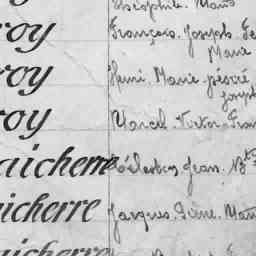 Théophile. Marie
roy François. Joseph. Fe
Marie
roy Henri. Marie pierre
Joseph
roy Marcel. Victor. Fran
aicherre Célestin Jean. Bte
icherre Jacques. Irène. Mari
aicherre